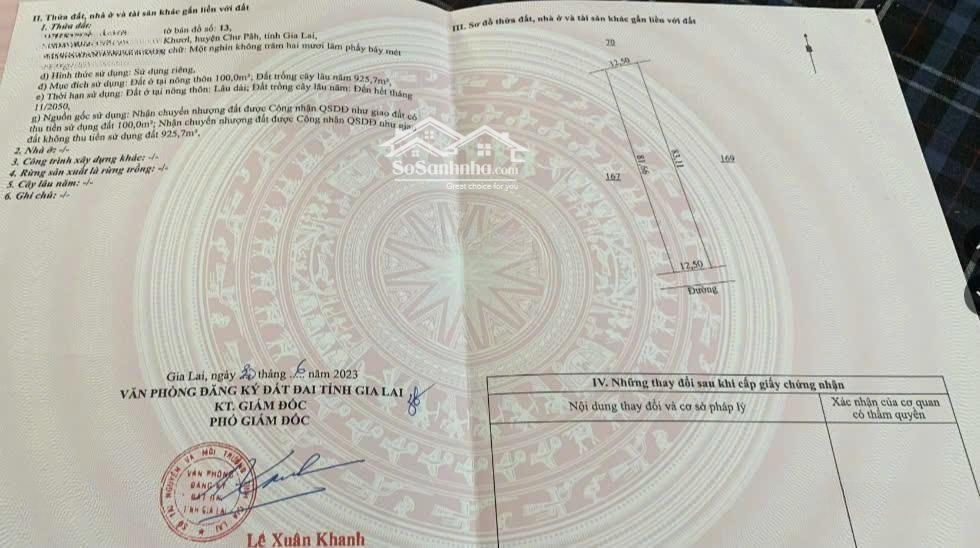 II. Thửa đất, nhà ở và tài sản khác gắn liền với đất
1. Thửa đất:
tờ bản đồ số: 13,
Khươl, huyện Chư Păh, tỉnh Gia Lai,
chữ: Một nghìn không trăm hai mươi lăm phẩy bảy mét
d) Hình thức sử dụng: Sử dụng riêng,
đ) Mục đích sử dụng: Đất ở tại nông thôn 100,0m²; Đất trồng cây lâu năm 925,7m²,
e) Thời hạn sử dụng: Đất ở tại nông thôn: Lâu dài; Đất trồng cây lâu năm: Đến hết tháng
11/2050,
g) Nguồn gốc sử dụng: Nhận chuyển nhượng đất được Công nhận QSDĐ như giao đất có
thu tiền sử dụng đất 100,0m²; Nhận chuyển nhượng đất được Công nhận QSDĐ như giao
đất không thu tiền sử dụng đất 925,7m².
2. Nhà ở: -/-
3. Công trình xây dựng khác: -/-
4. Rừng sản xuất là rừng trồng: -/-
5. Cây lâu năm: -/-
6. Ghi chú: -/-
SoSanhnha.com
Great choice for you
Gia Lai, ngày 20 tháng 6 năm 2023
VĂN PHÒNG ĐĂNG KÝ ĐẤT ĐAI TỈNH GIA LAI
KT. GIÁM ĐỐC
PHÓ GIÁM ĐỐC
SỞ TÀI NGUYÊN VÀ MÔI TRƯỜNG TỈNH GIA LAI
VĂN PHÒNG
ĐĂNG KÝ
ĐẤT ĐAI
TỈNH GIA LAI
Lê Xuân Khanh
III. Sơ đồ thửa đất, nhà ở và tài sản khác gắn liền với đất
70
12,50
81,66
83,11
167
169
12,50
Đường
IV. Những thay đổi sau khi cấp giấy chứng nhận
Nội dung thay đổi và cơ sở pháp lý
Xác nhận của cơ quan
có thẩm quyền